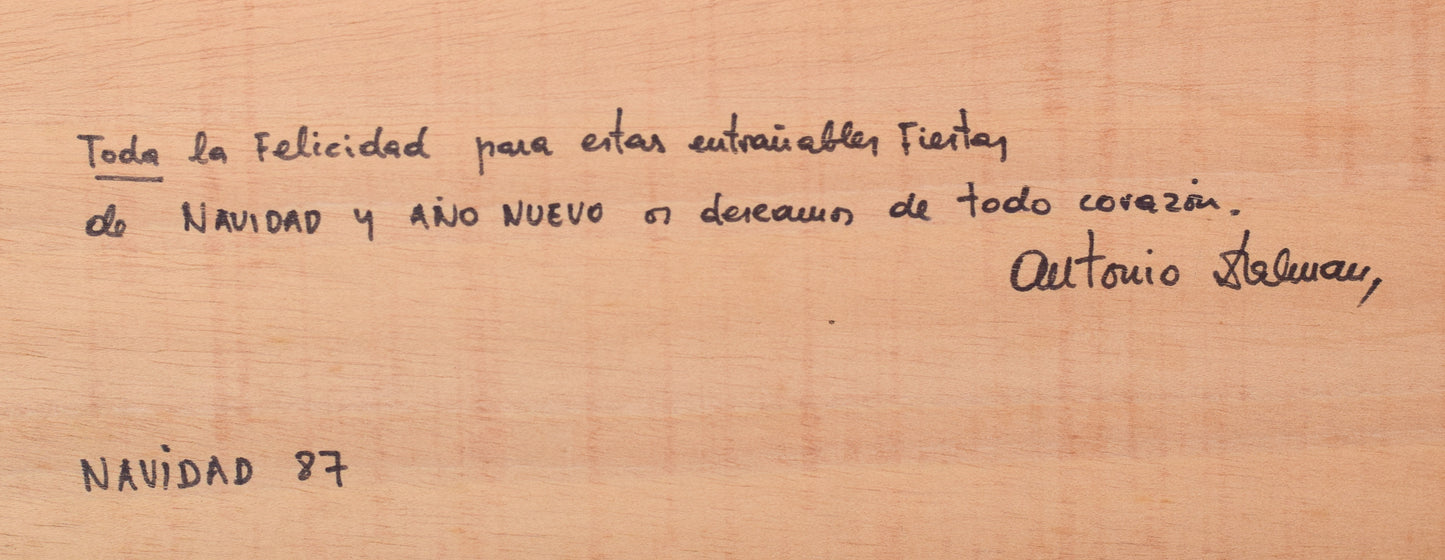 Toda la Felicidad para estas entrañables Fiestas
de NAVIDAD y AÑO NUEVO os deseamos de todo corazón.
Antonio
NAVIDAD 87